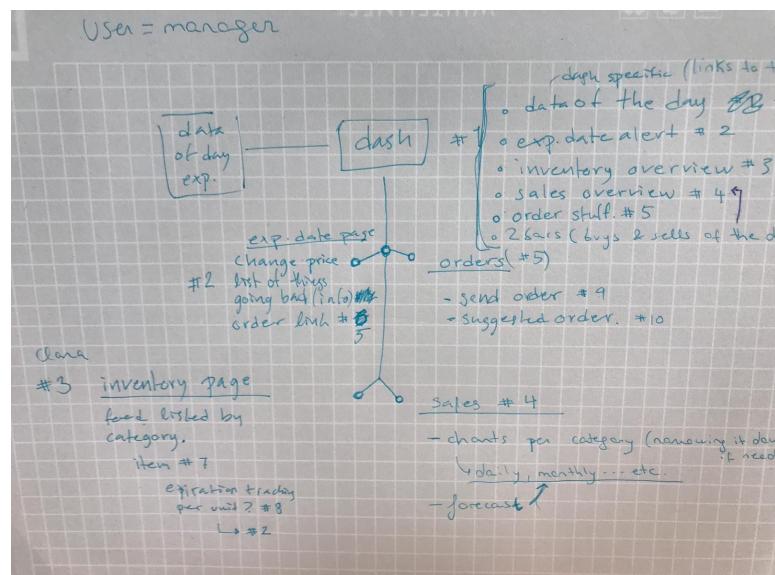 User = manager
dash specific (links to t
data of day exp.
dash
#1
• data of the day
• exp. date alert # 2
• inventory overview # 3
• sales overview # 4
• order stuff. # 5
• 2 bars (buys & sells of the d
exp. date page
change price
#2 list of things
going bad (info)
order link #
5
orders (#5)
- send order #9
- suggested order. #10
Clara
#3 inventory page
food listed by
category.
item # 7
expiration tracking
per unit? #8
↳ #2
sales # 4
- charts per category (narrowing it dow
if need
↳ daily, monthly ... etc.
- forecast